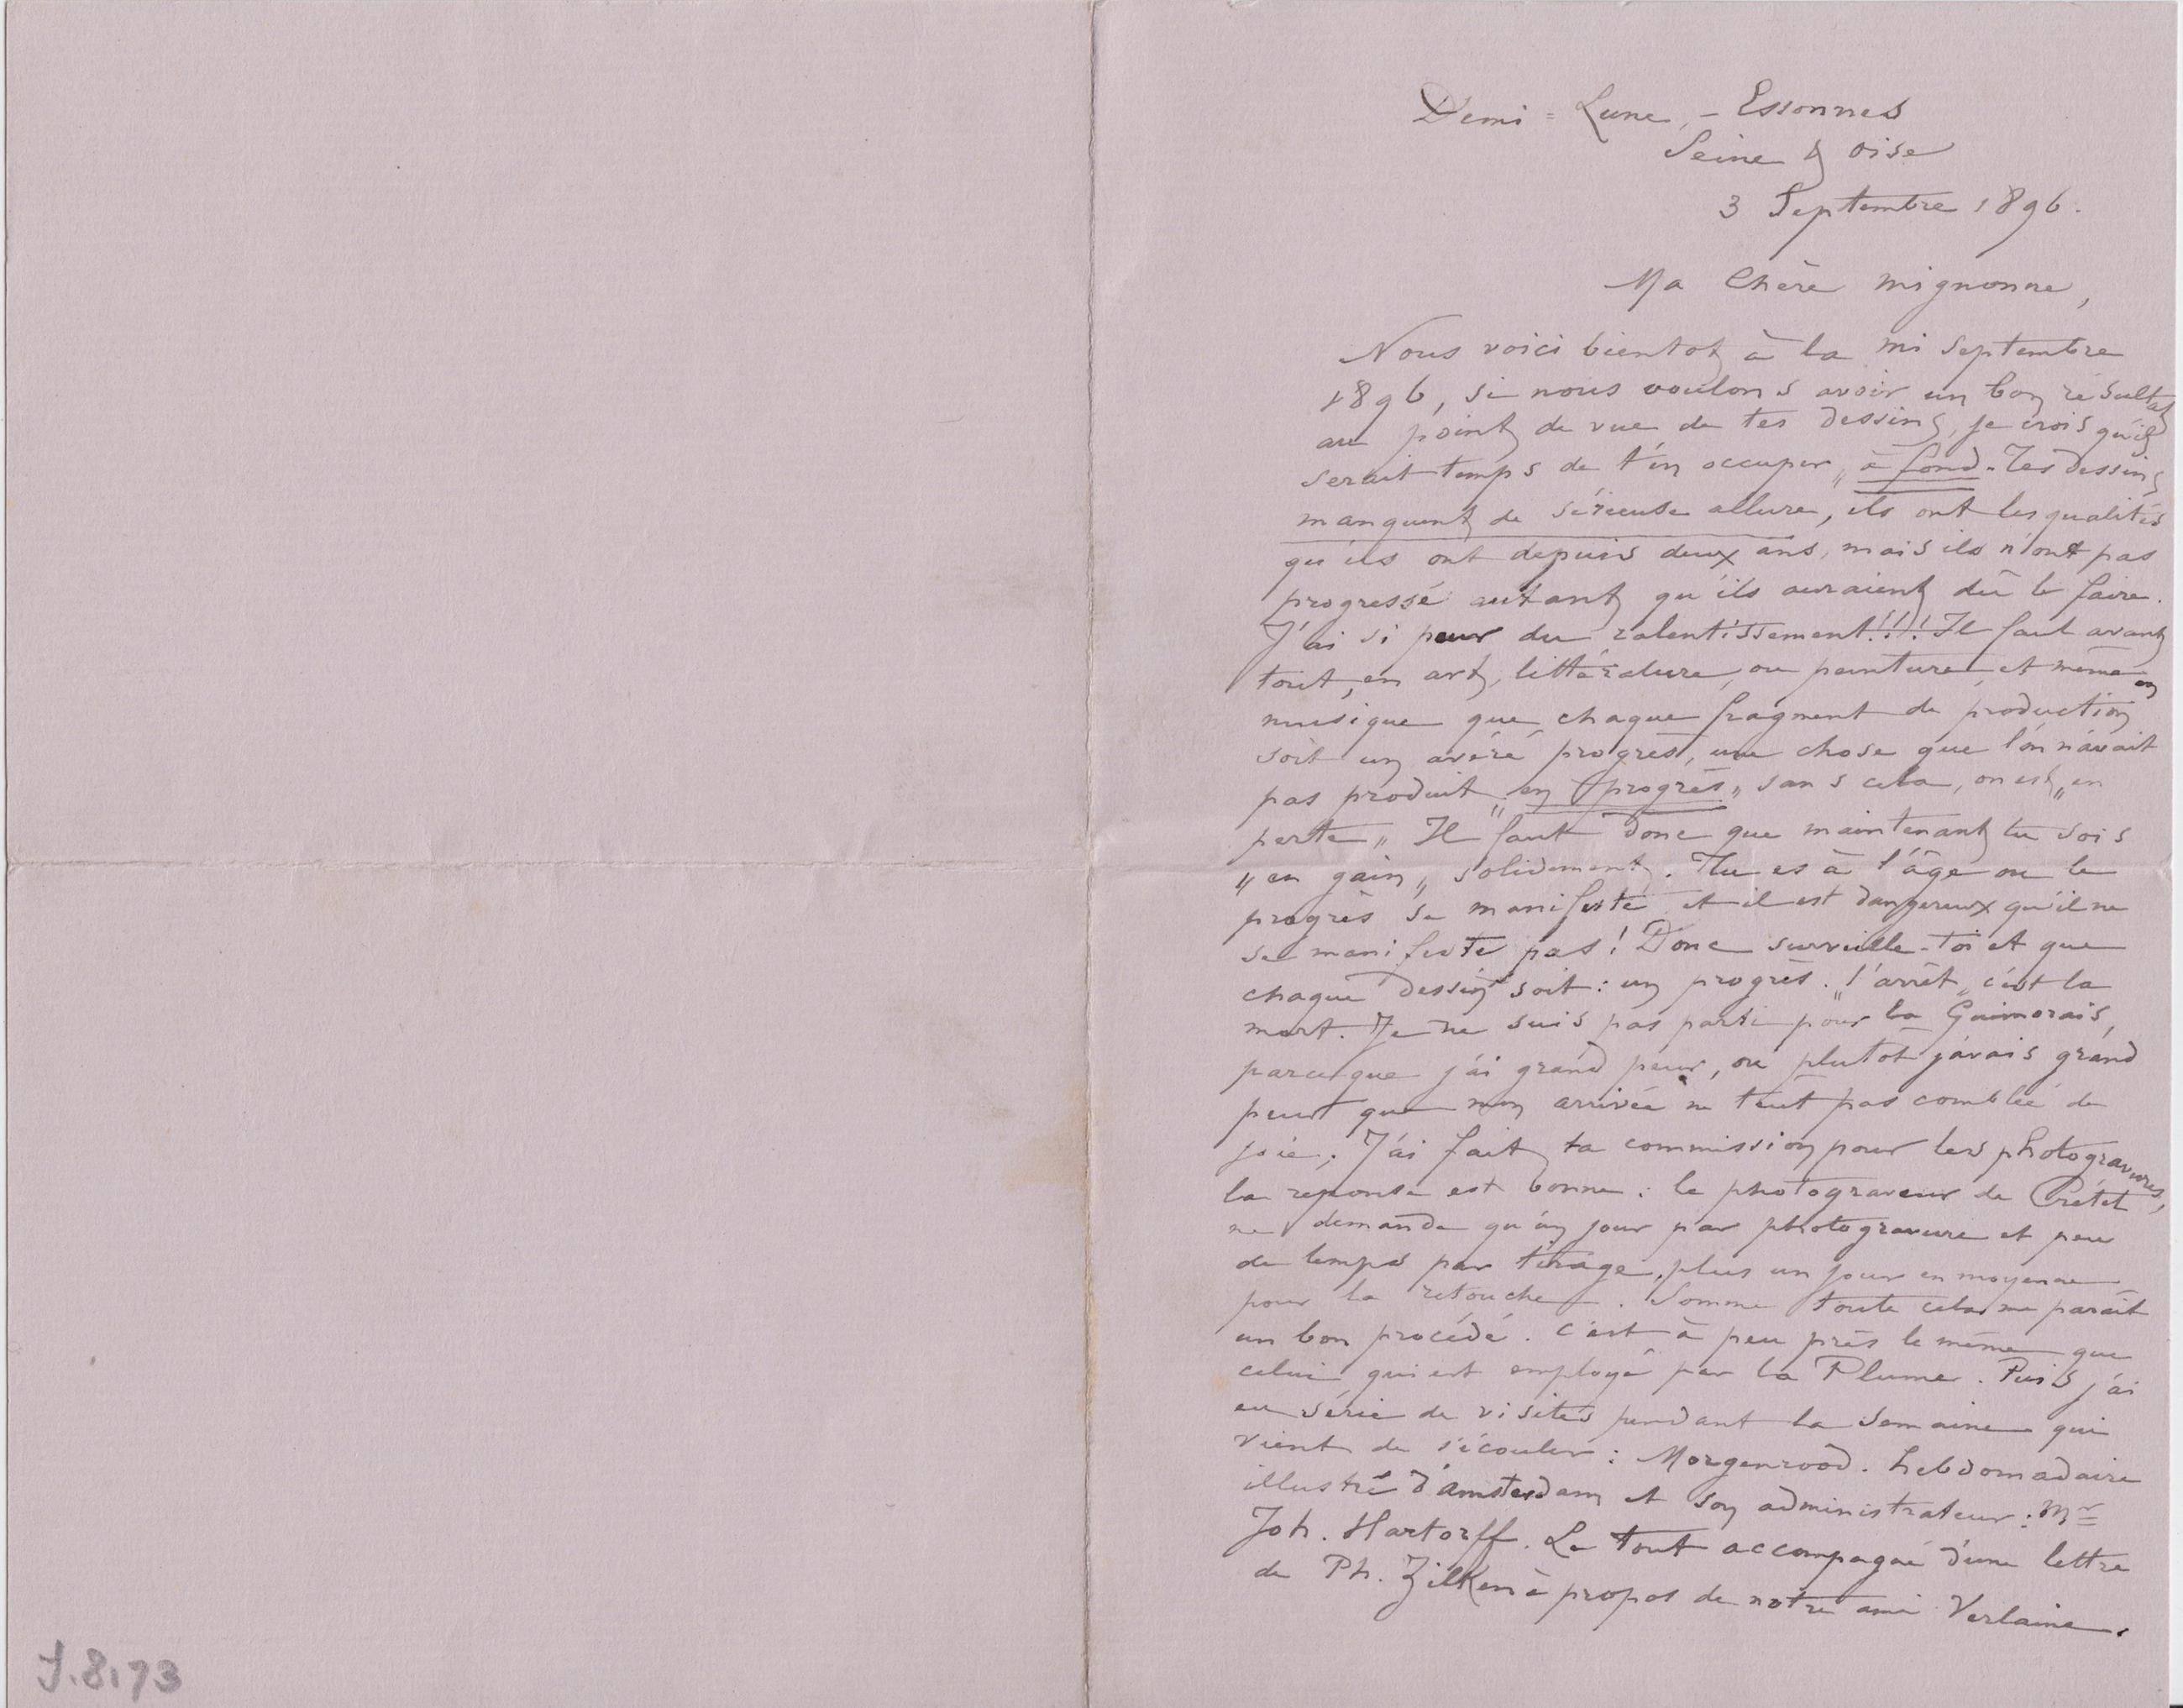 Demi = Lune, - Essonnes
Seine & Oise
3 Septembre 1896.
Ma Chère mignonne,
Nous voici bientot à la mi septembre
1896, si nous voulons avoir un bon résultat
au point de vue de tes dessins, je crois qu'il
serait temps de t'en occuper „ à fond. Tes dessins
manquent de sérieuse allure, ils ont les qualités
qu'ils ont depuis deux ans, mais ils n'ont pas
progressé autant qu'ils auraient dû le faire.
J'ai si peur du ralentissement!!! Il faut avant
tout, en art, littérature, ou peinture, et même en
musique que chaque fragment de production
soit un avéré progrès, une chose que l'on n'avait
pas produit „ en progrès „ sans cela, on est „ en
perte „ Il faut donc que maintenant tu sois
„ en gain „ solidement. Tu es à l'âge ou le
progrès se manifeste et il est dangereux qu'il ne
se manifeste pas! Donc surveille-toi et que
chaque dessin soit: un progrès. „ l'arrêt „ c'est la
mort. Je ne suis pas parti pour la Guimorais,
parceque j'ai grand peur, ou plutot j'avais grand
peur que mon arrivée ne t'eut pas comblée de
joie; J'ai fait ta commission pour les photogravures,
la reponse est bonne: le photograveur de Crétet
ne demande qu'un jour par photogravure et peu
de temps par tirage, plus un jour en moyenne
pour la retouche. Somme toute cela me parait
un bon procédé. c'est à peu près le même que
celui qui est employé par la Plume. Puis j'ai
eu série de visites pendant la semaine qui
vient de s'écouler: Morgenrood. hebdomadaire
illustré d'Amsterdam et son administrateur: Mr
Joh. Hartorff. Le tout accompagné d'une lettre
de Ph. Zilken à propos de notre ami Verlaine.
J.8.73